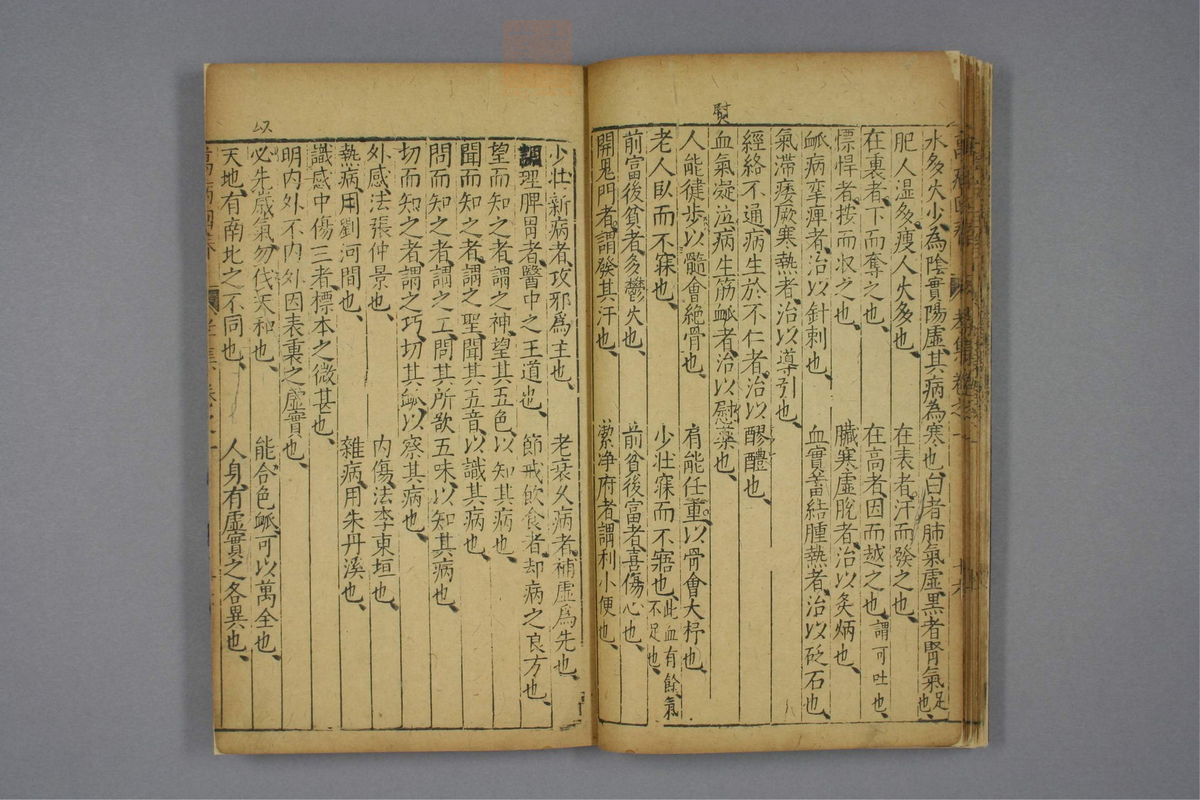 熨
水多火少爲陰實陽虛其病為寒也白者肺氣虛黑者腎氣足也
肥人濕多瘦人火多也 在表者汗而發之也
在裏者下而奪之也 在高者因而越之也謂可吐也
慓悍者按而収之也 臟寒虛脫者治以灸焫也
脈病攣痺者治以針刺也 血實蓄結腫熱者治以砭石也
氣滯痿厥寒熱者治以導引也
經絡不通病生於不仁者治以醪醴也
血氣凝泣病生筋脈者治以慰藥也
人能健步以髓會絕骨也 肩能任重以骨會大杼也
老人臥而不寐也 少壯寐而不寤也此血有餘氣不足也
前富後貧者多鬱火也 前貧後富者喜傷心也
開鬼門者謂發其汗也 潔净府者謂利小便也
以
少壯新病者攻邪爲主也 老衰久病者補虛爲先也
調理脾胃者醫中之王道也 節戒飲食者却病之良方也
望而知之者謂之神望其五色以知其病也
聞而知之者謂之聖聞其五音以識其病也
問而知之者謂之工問其所欲五味以知其病也
切而知之者謂之巧切其脈以察其病也
外感法張仲景也 內傷法李東垣也
熱病用劉河間也 雜病用朱丹溪也
識感中傷三者標本之微甚也
明內外不內外因表裏之虛實也
必先歲氣勿伐天和也 能合色脈可以萬全也
天地有南北之不同也 人身有虛實之各異也